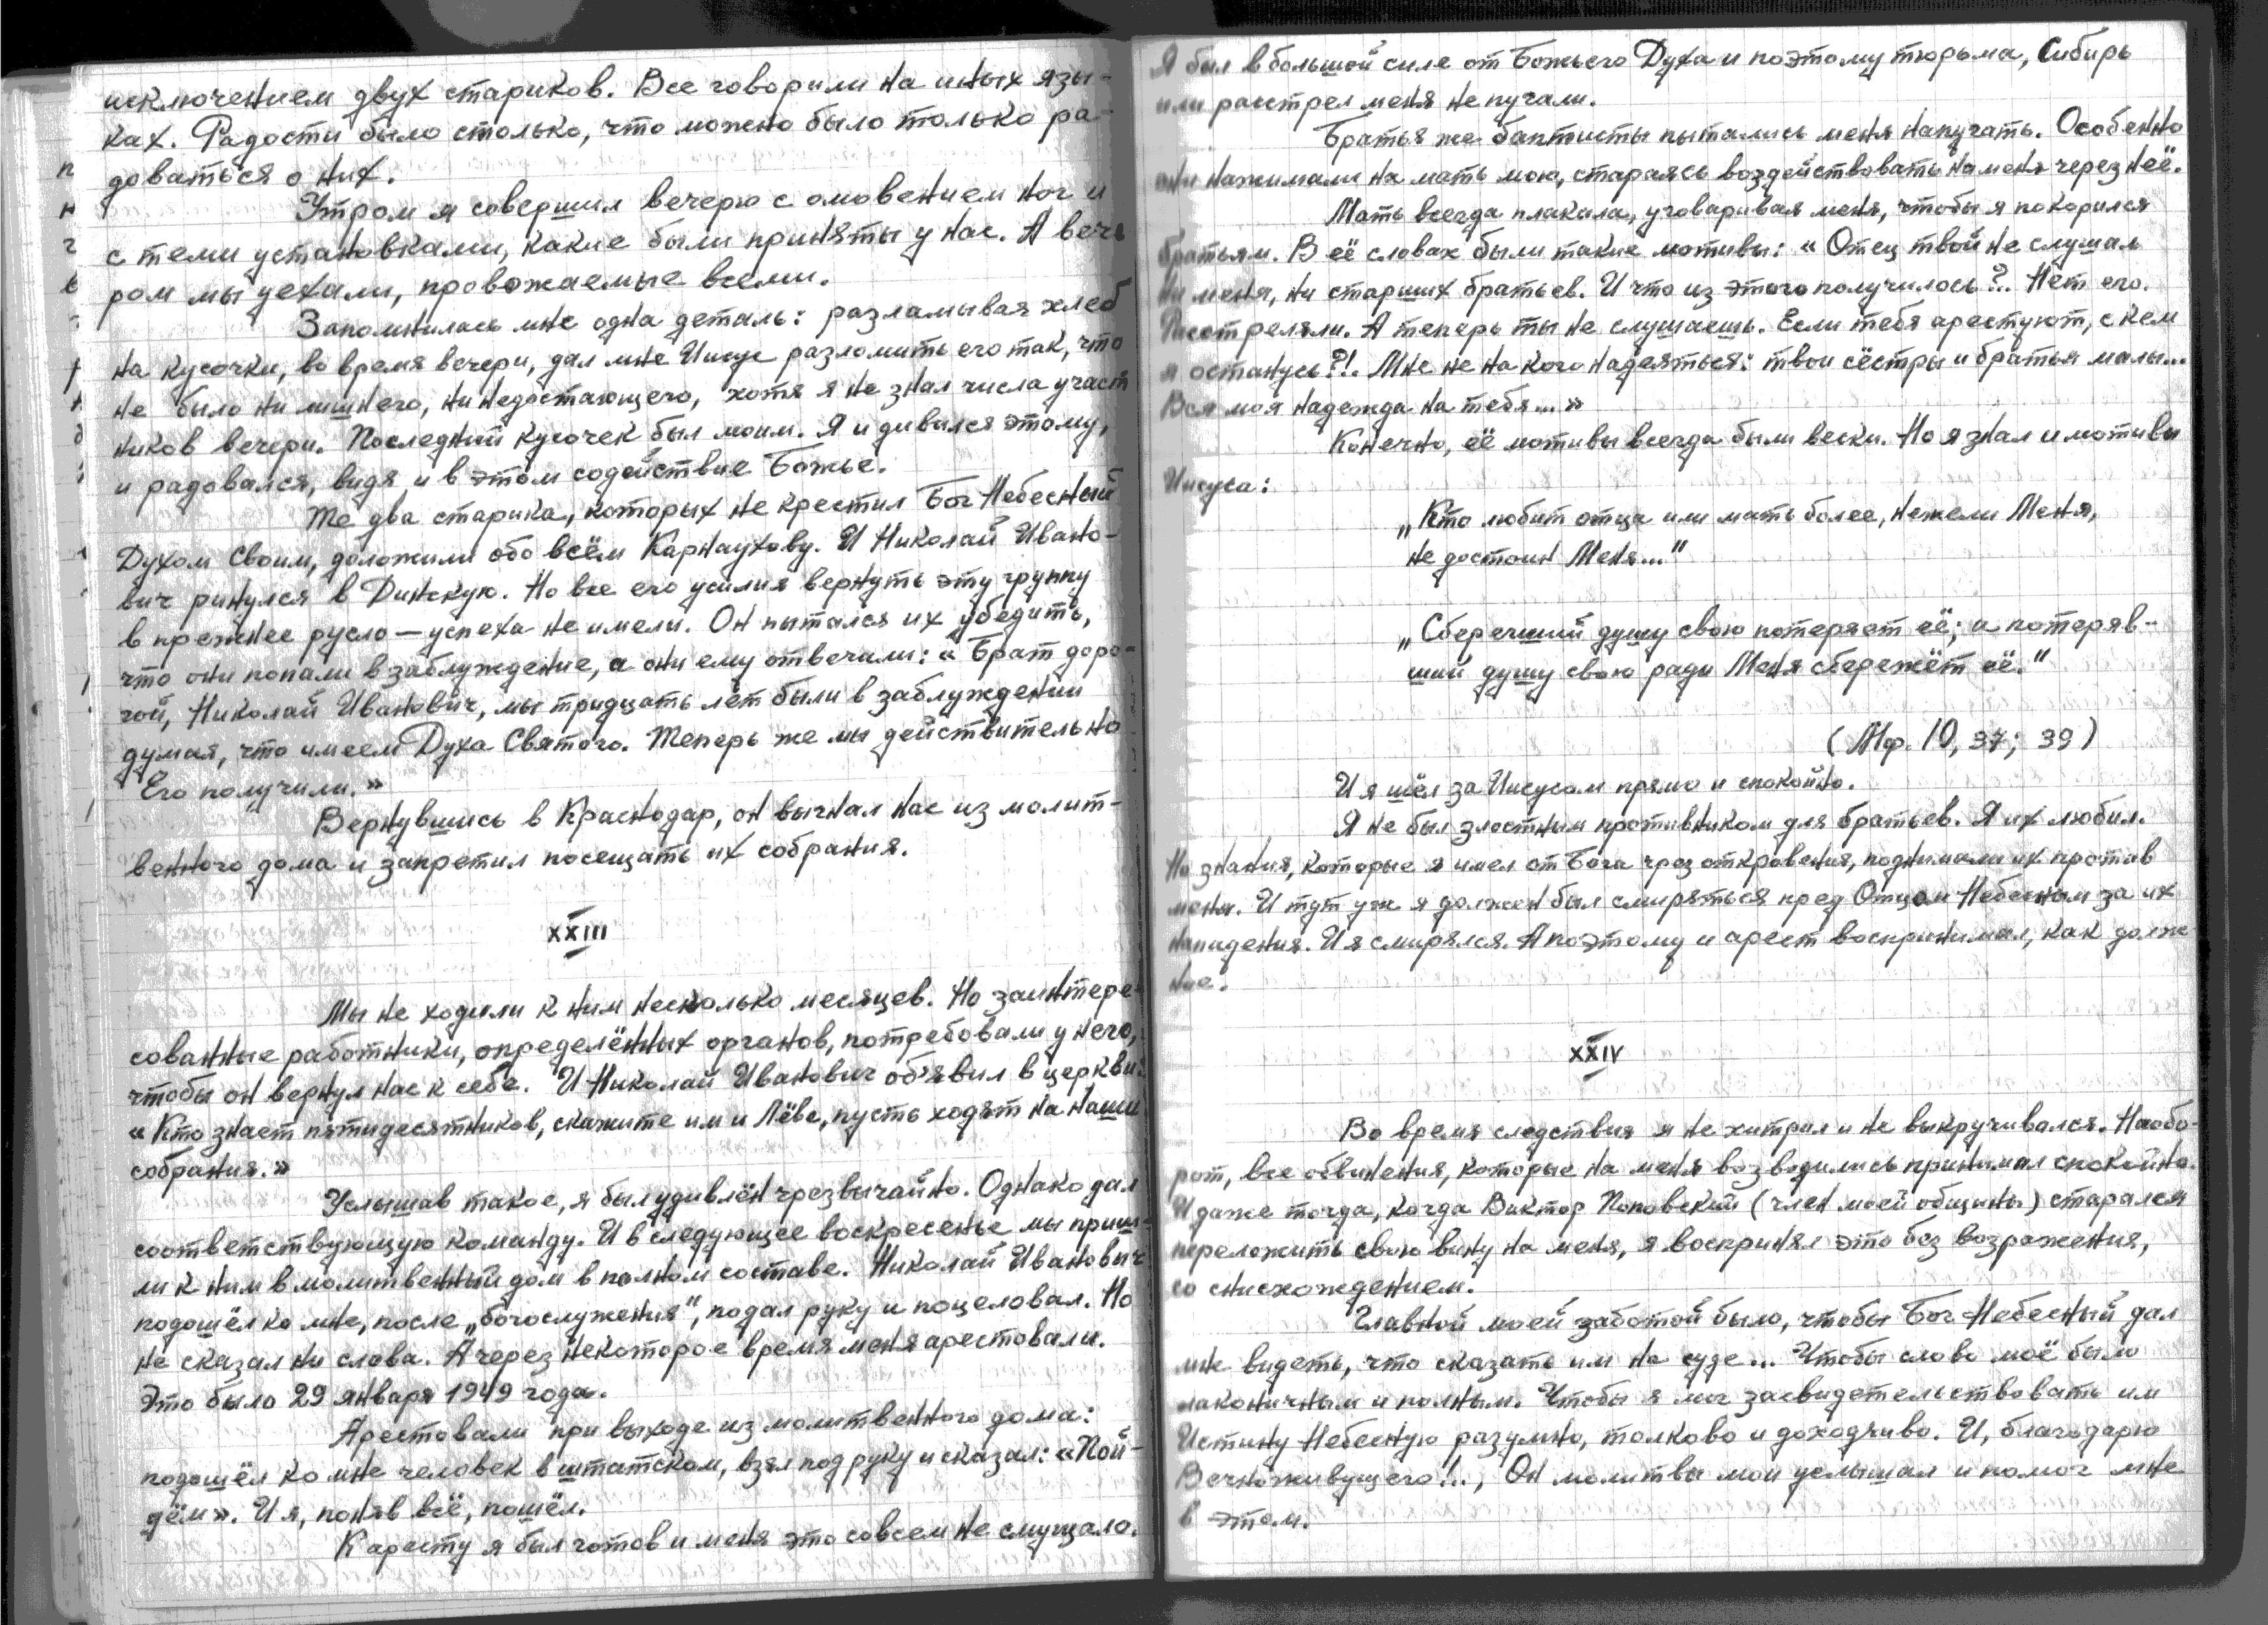 исключением двух стариков. Все говорили на иных язы-
ках. Радости было столько, что можно было только ра-
доваться о них.
Утром я совершил вечерю с омовением ног и
с теми установками, какие были приняты у нас. А вече
ром мы уехали, провожаемые всеми.
Запомнилась мне одна деталь: разламывая хлеб
на кусочки, во время вечери, дал мне Иисус разломить его так, что
не было ни лишнего, ни недостающего, хотя я не знал числа участ
ников вечери. Последний кусочек был моим. Я и дивился этому,
и радовался, видя и в этом содействие Божье.
Те два старика, которых не крестил Бог Небесный
Духом Своим, доложили обо всём Карнаухову. И Николай Ивано-
вич ринулся в Динскую. Но все его усилия вернуть эту группу
в прежнее русло — успеха не имели. Он пытался их убедить,
что они попали в заблуждение, а они ему отвечали: « Брат доро-
гой, Николай Иванович, мы тридцать лет были в заблуждении
думая, что имеем Духа Святого. Теперь же мы действительно
Его получили.»
Вернувшись в Краснодар, он выгнал нас из молит-
венного дома и запретил посещать их собрания.
XXIII
Мы не ходили к ним несколько месяцев. Но заинтере-
сованные работники, определённых органов, потребовали у него,
чтобы он вернул нас к себе. И Николай Иванович об'явил в церкви:
« Кто знает пятидесятников, скажите им и Лёве, пусть ходят на наши
собрания.»
Услышав такое, я был удивлён чрезвычайно. Однако дал
соответствующую команду. И в следующее воскресенье мы приш-
ли к ним в молитвенный дом в полном составе. Николай Иванович
подошёл ко мне, после „богослужения", подал руку и поцеловал. Но
не сказал ни слова. А через некоторое время меня арестовали.
Это было 29 января 1949 года.
Арестовали при выходе из молитвенного дома:
подошёл ко мне человек в штатском, взял под руку и сказал: «Пой-
дём». И я, поняв всё, пошёл.
К аресту я был готов и меня это совсем не смущало.
Я был в большой силе от Божьего Духа и поэтому тюрьма, Сибирь
или расстрел меня не пугали.
Братья же баптисты пытались меня напугать. Особенно
они нажимали на мать мою, стараясь воздействовать на меня через неё.
Мать всегда плакала, уговаривая меня, чтобы я покорился
братьям. В её словах были такие мотивы: « Отец твой не слушал
ни меня, ни старших братьев. И что из этого получилось?.. Нет его.
Расстреляли. А теперь ты не слушаешь. Если тебя арестуют, с кем
я останусь?!. Мне не на кого надеяться: твои сёстры и братья малы...
Вся моя надежда на тебя...»
Конечно, её мотивы всегда были вески. Но я знал и мотивы
Иисуса:
„Кто любит отца или мать более, нежели Меня,
не достоин Меня..."
„Сберегший душу свою потеряет её; а потеряв-
ший душу свою ради Меня сбережёт её."
(Мф. 10, 37; 39)
И я шёл за Иисусом прямо и спокойно.
Я не был злостным противником для братьев. Я их любил.
Но знания, которые я имел от Бога чрез откровения, поднимали их против
меня. И тут уж я должен был смиряться пред Отцом Небесным за их
нападения. И я смирялся. А поэтому и арест воспринимал, как долж
ное.
XXIV
Во время следствия я не хитрил и не выкручивался. Наобо-
рот, все обвинения, которые на меня возводились принимал спокойно.
И даже тогда, когда Виктор Поповский (член моей общины) старался
переложить свою вину на меня, я воспринял это без возражения,
со снисхождением.
Главной моей заботой было, чтобы Бог Небесный дал
мне видеть, что сказать им на суде... Чтобы слово моё было
лаконичным и полным. Чтобы я мог засвидетельствовать им
Истину Небесную разумно, толково и доходчиво. И, благодарю
Вечноживущего!.., Он молитвы мои услышал и помог мне
в этом.